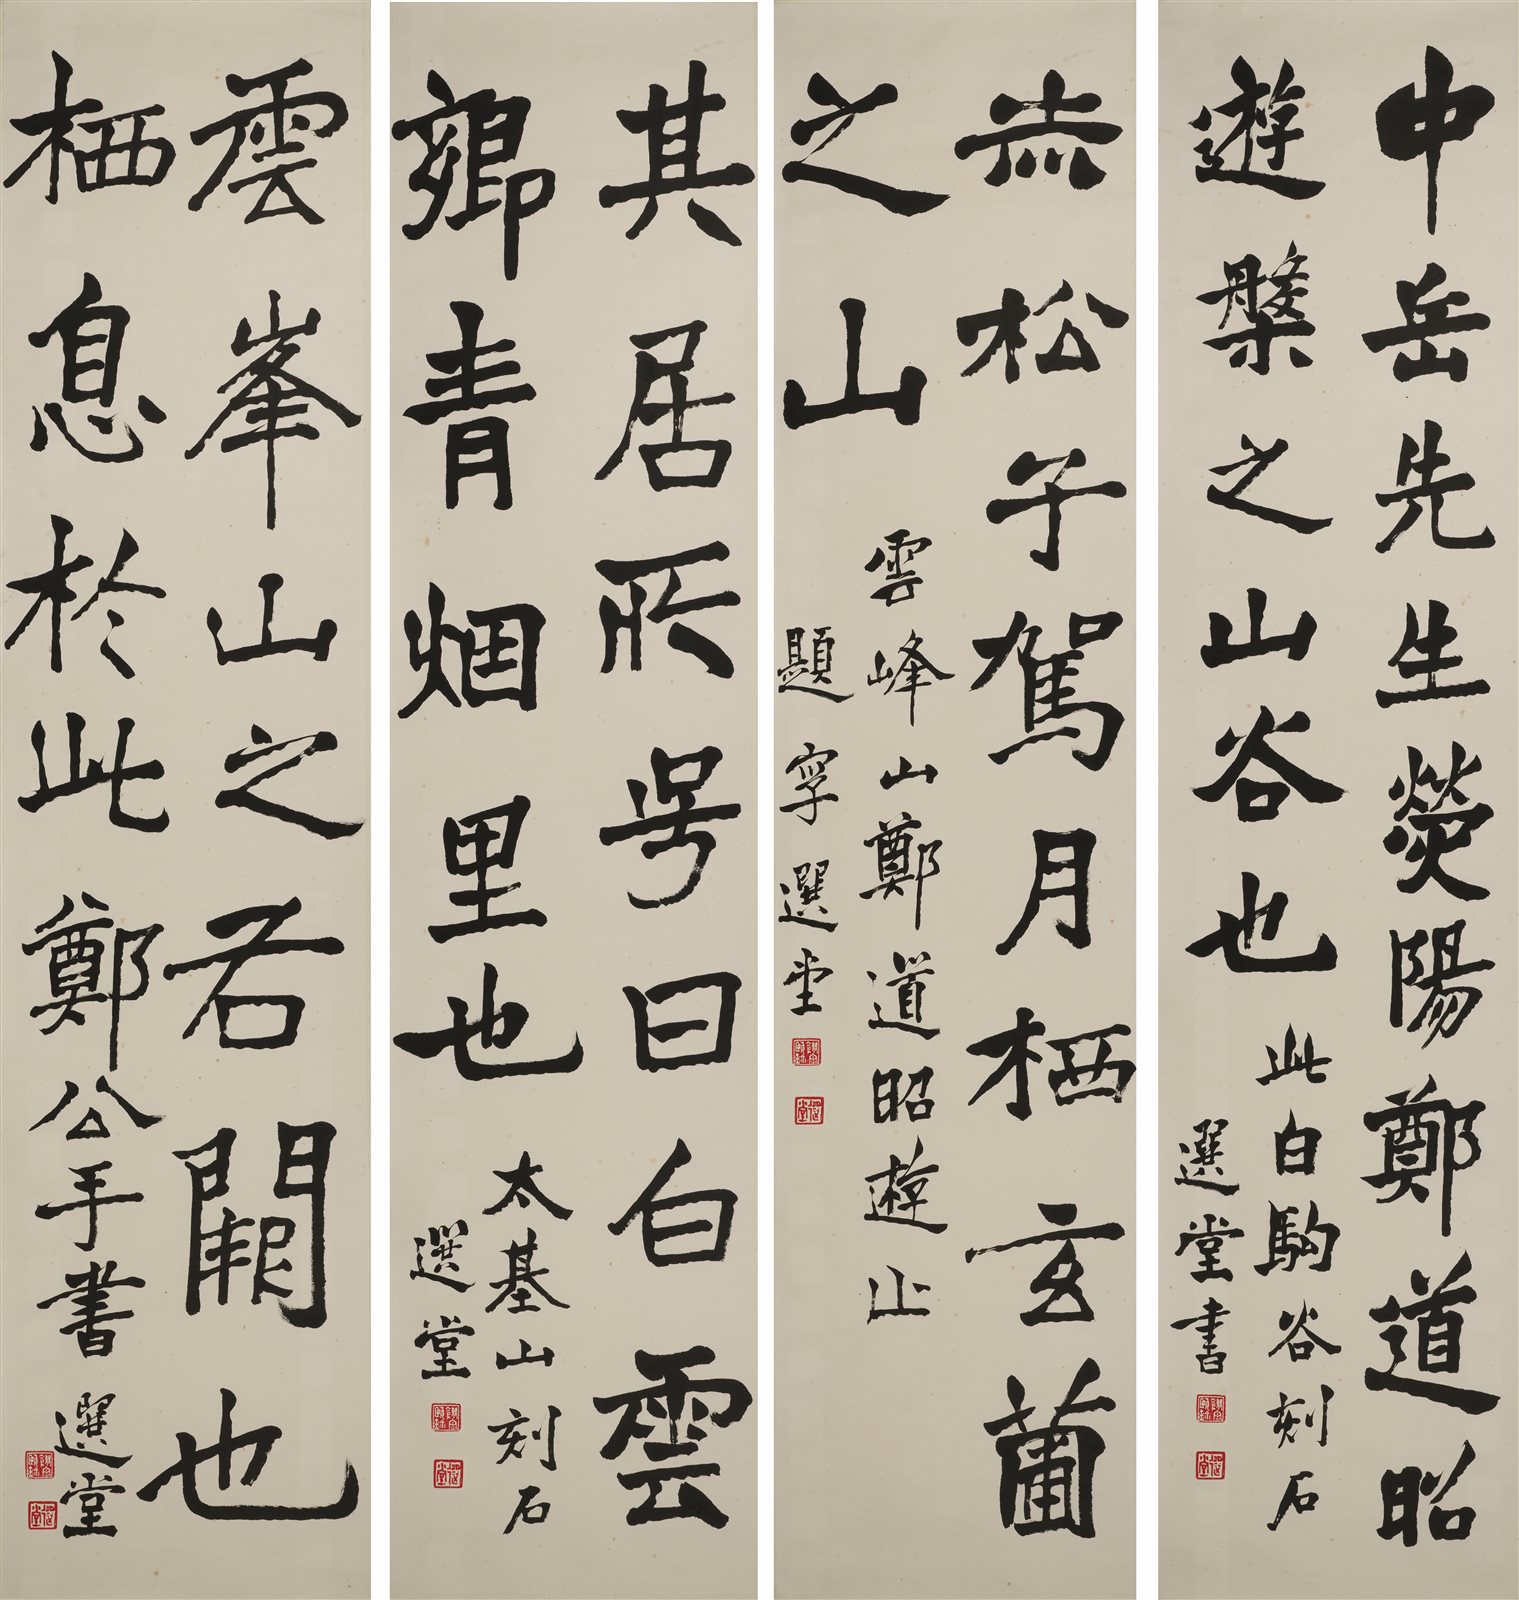 中岳先生熒陽鄭道昭
遊槃之山谷也
此白駒谷刻石
選堂書
赤松子駕月栖玄圃
之山
雲峰山鄭道昭遊止
題字 選堂
其居所号曰白雲
鄉青烟里也
太基山刻石
選堂
雲峯山之右闕也
栖息於此 鄭公手書
選堂